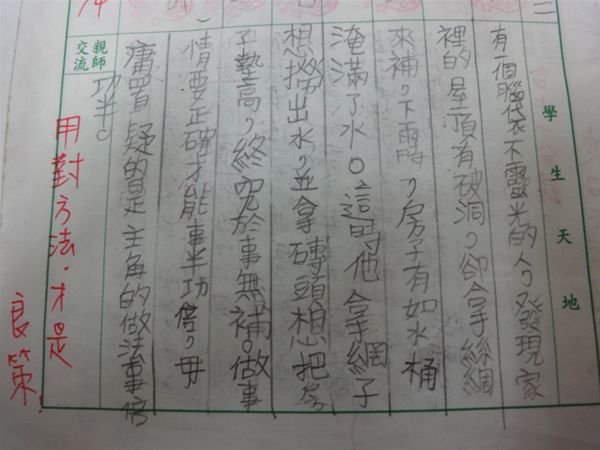 學生天地
有一個腦袋不靈光的人，發現家
裡的屋頂有破洞，卻拿絲綢
來補，下雨時，房子有如水桶
淹滿了水。這時他拿網子
想撈出水，並拿磚頭想把房
子墊高，終究於事無補。做事
情要正確才能事半功倍，毋
庸置疑的是主角的做法事倍
功半。
親師
交流
用對方法，才是
良策！